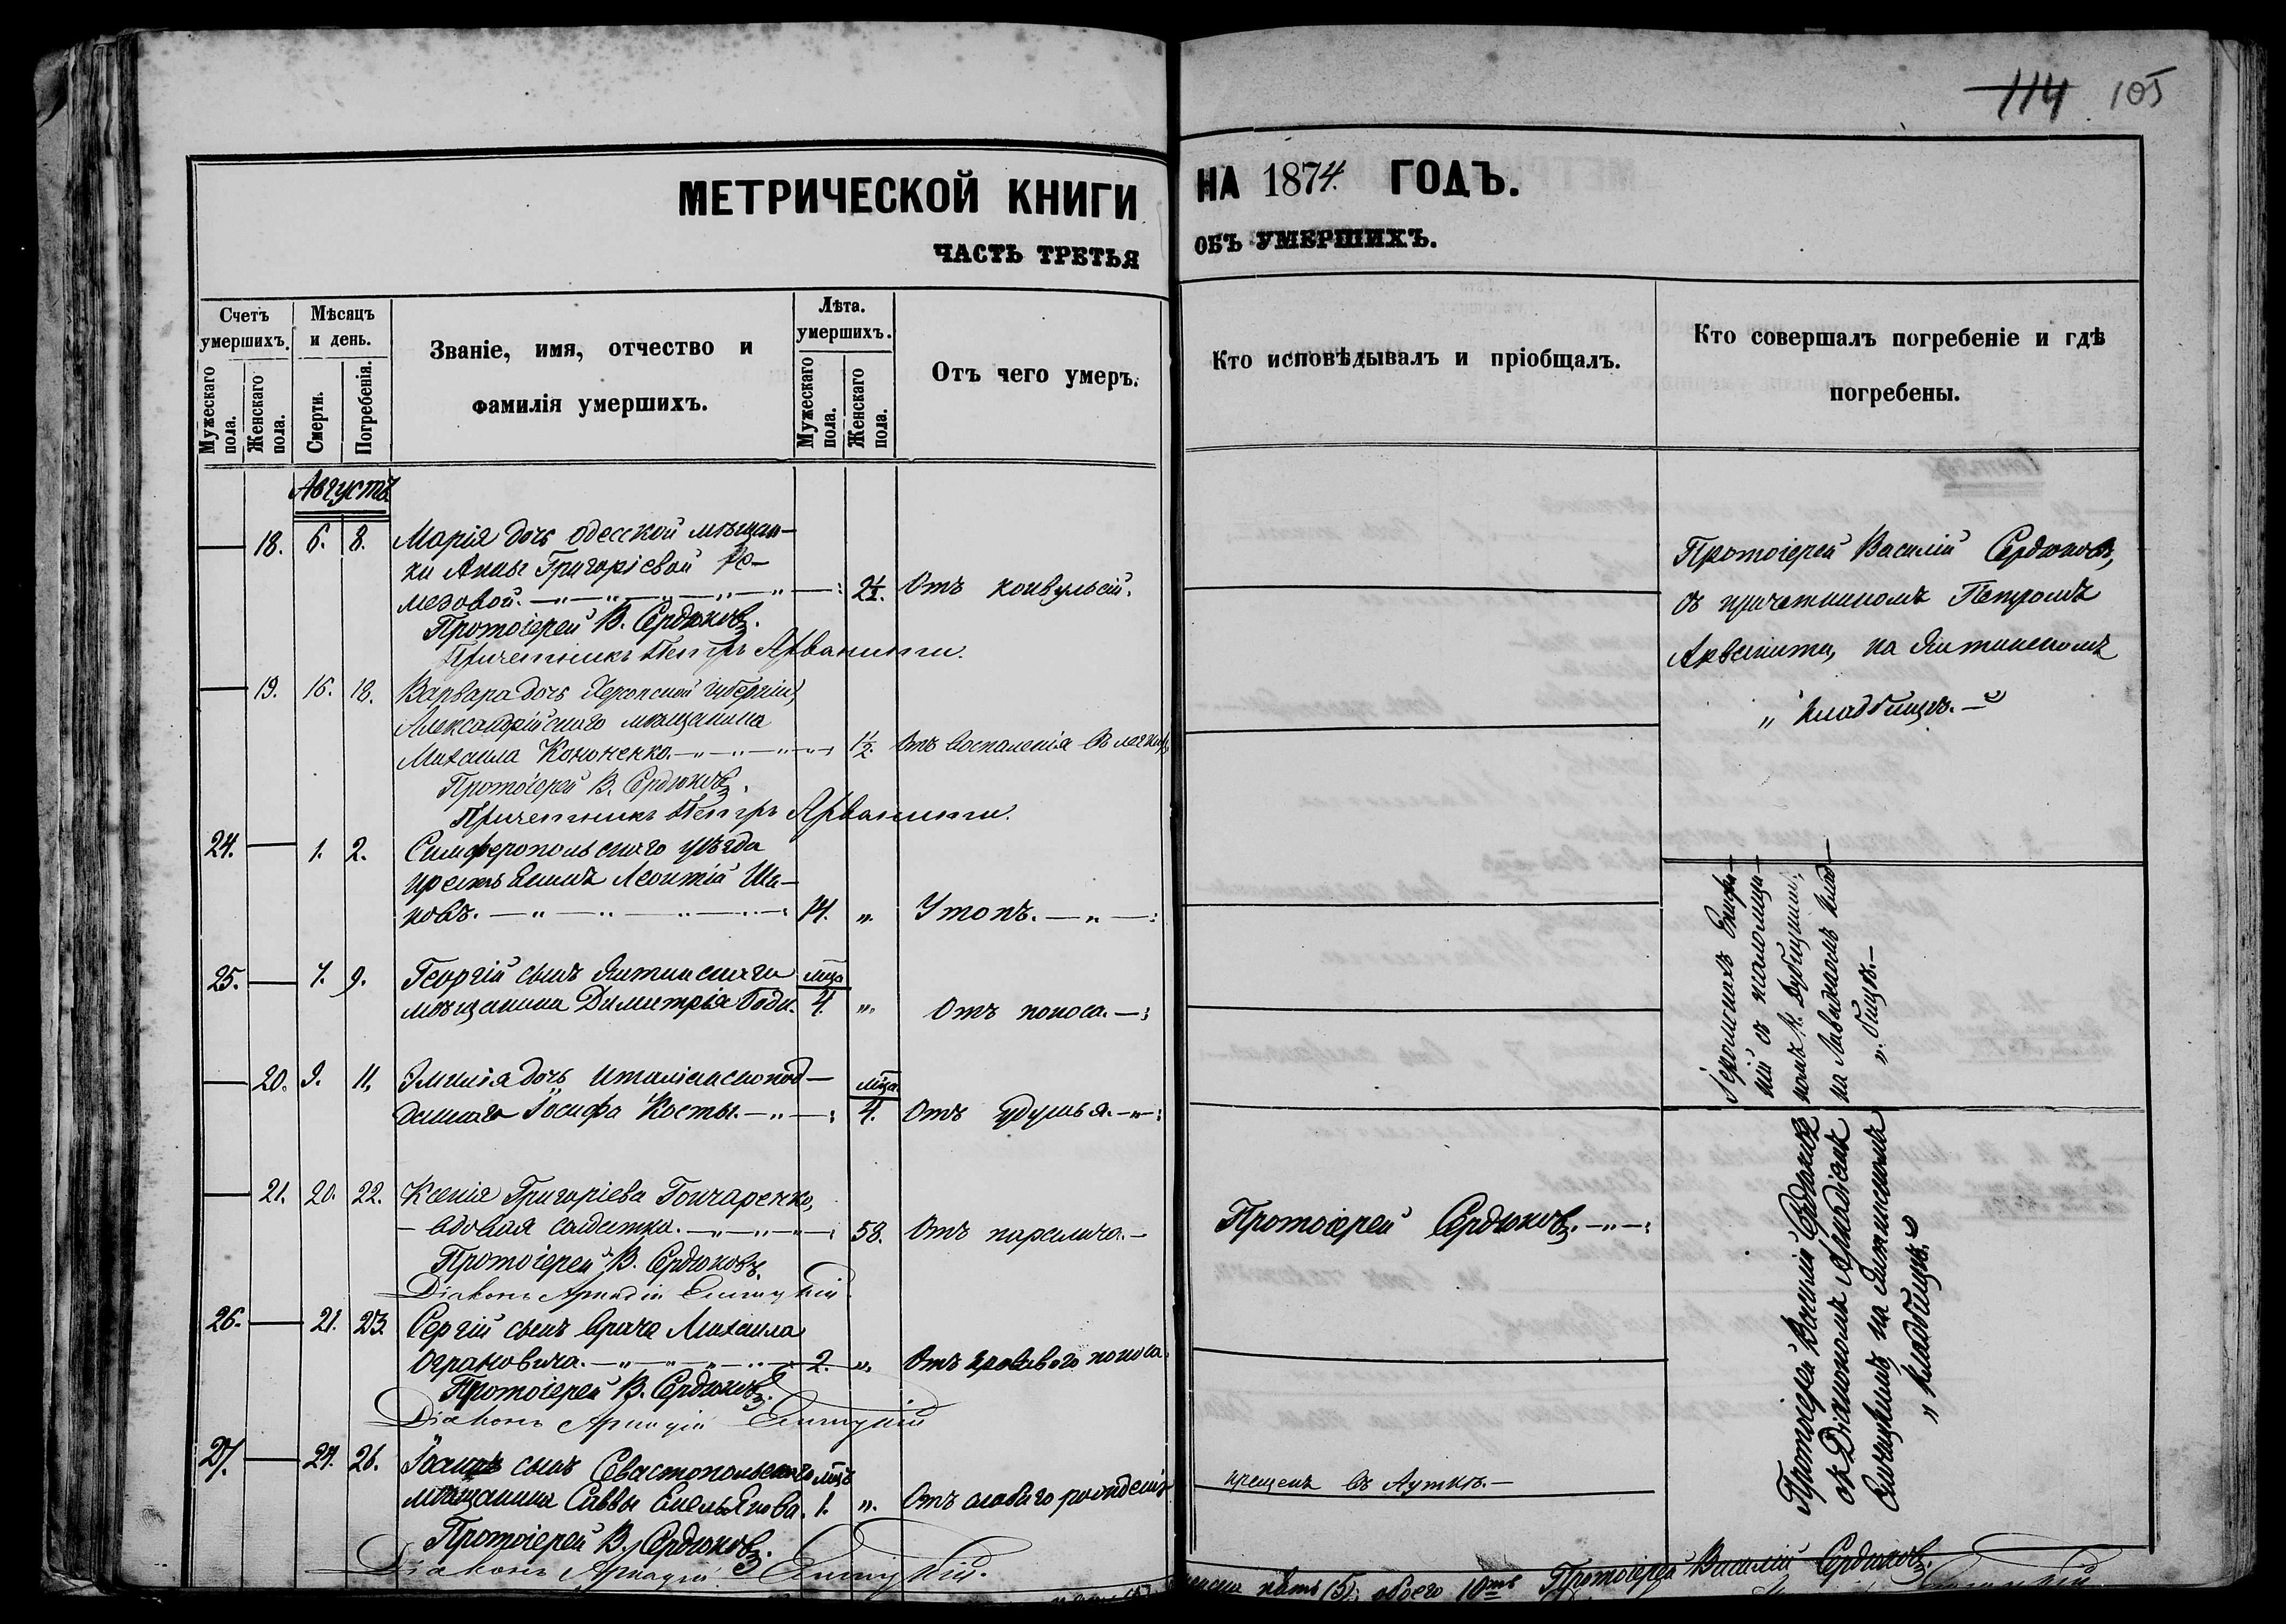 114 105
МЕТРИЧЕСКОЙ КНИГИ НА 1874. ГОДЪ.
ЧАСТЬ ТРЕТЬЯ ОБЪ УМЕРШИХЪ.
Счетъ умершихъ.
Мужескаго пола.
Женскаго пола.
Мѣсяцъ и день.
Смерти.
Погребенія.
Званіе, имя, отчество и
фамилія умершихъ.
Лѣта. умершихъ.
Мужескаго пола.
Женскаго пола.
Отъ чего умеръ.
Кто исповѣдывалъ и пріобщалъ.
Кто совершалъ погребеніе и гдѣ
погребены.
Августъ
18. 6. 8. Марія дочь одесской мѣщан-
ки Анны Григоріевой
медовой. 2½. Отъ конвульсій.
Протоіерей В. Сердюковъ.
Причетникъ Петръ Арванити.
Протоіерей Василій Сердюковъ,
съ причетникомъ Петромъ
Арванити, на Ялтинскомъ
„ кладбищѣ.
19. 16. 18. Варвара дочь Херсонской губерніи,
Александрійскаго мѣщанина
Михаила Кононенко. 1½. Отъ воспаленія въ легкихъ
Протоіерей В. Сердюковъ.
Причетникъ Петръ Арванити.
24. 1. 2. Симферопольскаго уѣзда
Леонтій Ша-
ковъ. 14. „ Утопъ.
25. 7. 9. Георгій сынъ Ялтинскаго мца
мѣщанина Димитрія Годи. 4. „ Отъ поноса.
20. 9. 11. Эмилія дочь италіанскопод- мца
даннаго Іосифа Косты. 4. Отъ удушья.
Іеромонахъ
ній съ псаломщи-
комъ Н.
на Ливадскомъ клад-
„ бищѣ.
21. 20. 22. Ксенія Григоріева Гончаренко,
вдовая солдатка. 58. Отъ паралича.
Протоіерей Сердюковъ.
Протоіерей В. Сердюковъ.
Діаконъ Аркадій
26. 21. 23. Сергій сынъ врача Михаила
Ограновича. 2. „ Отъ кроваваго поноса.
Протоіерей В. Сердюковъ.
Діаконъ Аркадій
27. 24. 26. Іоаннъ сынъ Севастопольскаго мцъ
мѣщанина Саввы Емельянова. 1. „ Отъ слабаго рожденія
крещенъ въ Ауткѣ.
Протоіерей В. Сердюковъ.
Діаконъ Аркадій
Протоіерей Василій Сердюковъ
съ Діакономъ Аркадіемъ
на Ялтинскомъ
„ кладбищѣ.
пять (5), обоего 10ть Протоіерей Василій Сердюковъ.